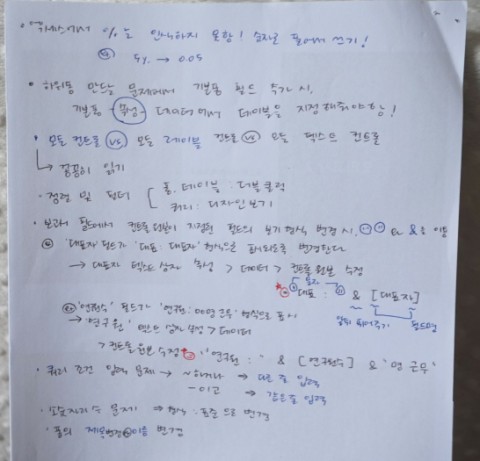 • 액세스에서 %는 인식하지 못함! 숫자로 풀어서 쓰기!
ex) 5% → 0.05
• 하위폼 만들 문제에서 기본폼 필드 추가 시,
기본폼 - 속성 - 데이터에서 테이블을 지정해줘야함!
• 모든 컨트롤 vs 모든 레이블 컨트롤 vs 모든 텍스트 컨트롤
↳ 꼼꼼히 읽기
• 정렬 및 필터 [ 폼, 테이블 : 더블클릭
쿼리 : 디자인보기
• 보고서 필드에서 컨트롤 원본이 지정된 필드의 보기 형식 변경 시, " " & & 이용
ex) '대표자' 필드가 '대표 : 대표자' 형식으로 표시되도록 변경한다
→ 대표자 텍스트 상자 속성 > 데이터 > 컨트롤 원본 수정
= " 대표 : " & [대표자]
띄어주기 필드명
ex) '연구원수' 필드가 '연구원 : 명 근무' 형식으로 표시
→ '연구원' 텍스트 상자 속성 > 데이터
> 컨트롤 원본 수정 = "연구원 : " & [연구원수] & "명 근무"
• 쿼리 조건 입력 문제 → ~이거나 → 다른 줄 입력
~이고 → 같은 줄 입력
• 소수자리수 문제 → 형식 : 표준으로 변경
• 폼의 제목변경 이름 변경